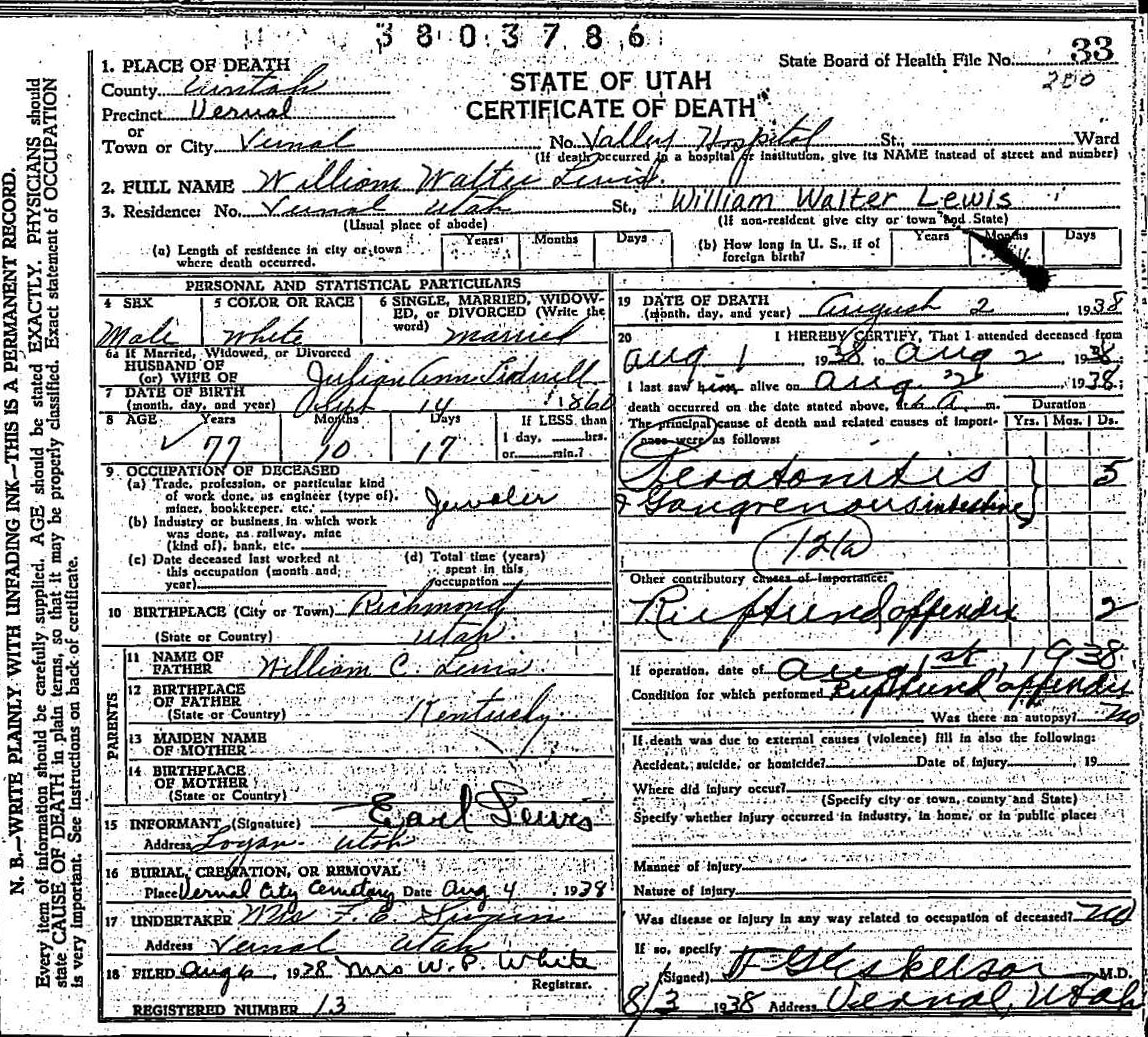 3803786
State Board of Health File No. 33
200
STATE OF UTAH
CERTIFICATE OF DEATH
1. PLACE OF DEATH
County Uintah
Precinct Vernal
or
Town or City Vernal No. Valley Hospital St., Ward
(If death occurred in a hospital or institution, give its NAME instead of street and number)
2. FULL NAME William Walter Lewis.
3. Residence: No. Vernal Utah St., William Walter Lewis
(Usual place of abode) (If non-resident give city or town and State)
(a) Length of residence in city or town where death occurred. Years Months Days
(b) How long in U. S., if of foreign birth? Years Months Days
PERSONAL AND STATISTICAL PARTICULARS
4 SEX Male
5 COLOR OR RACE White
6 SINGLE, MARRIED, WIDOWED, or DIVORCED (Write the word) married
6a If Married, Widowed, or Divorced
HUSBAND OF
(or) WIFE OF Julian Ann Tidwell
7 DATE OF BIRTH
(month, day, and year) Sept 14 1860
8 AGE Years Months Days If LESS than
77 10 17 1 day, hrs.
or min.?
9 OCCUPATION OF DECEASED
(a) Trade, profession, or particular kind
of work done, as engineer (type of),
miner, bookkeeper, etc. Jeweler
(b) Industry or business in which work
was done, as railway, mine
(kind of), bank, etc.
(c) Date deceased last worked at
this occupation (month and
year)
(d) Total time (years)
spent in this
occupation
10 BIRTHPLACE (City or Town) Richmond
(State or Country) Utah.
PARENTS
11 NAME OF
FATHER William C. Lewis
12 BIRTHPLACE
OF FATHER
(State or Country) Kentucky
13 MAIDEN NAME
OF MOTHER
14 BIRTHPLACE
OF MOTHER
(State or Country)
15 INFORMANT (Signature) Earl Lewis
Address Logan Utah
16 BURIAL, CREMATION, OR REMOVAL
Place Vernal City Cemetary Date Aug 4, 1938
17 UNDERTAKER Mrs F. E.
Address Vernal Utah
18 FILED Aug 6, 1938 Mrs W. P. White
Registrar.
REGISTERED NUMBER 13
19 DATE OF DEATH
(month, day, and year) August 2, 1938
20 I HEREBY CERTIFY, That I attended deceased from
Aug 1 1938 to Aug 2 1938
I last saw him alive on Aug 2 1938;
death occurred on the date stated above, m. Duration
The principal cause of death and related causes of importance were as follows: Yrs. Mos. Ds.
Peratonitis 5
& Gangrenous intestine
121a
Other contributory causes of importance:
Ruptured appendix 2
If operation, date of Aug 1st, 1938
Condition for which performed Ruptured appendix
Was there an autopsy? no
If death was due to external causes (violence) fill in also the following:
Accident, suicide, or homicide? Date of injury, 19
Where did injury occur?
(Specify city or town, county and State)
Specify whether injury occurred in industry, in home, or in public place:
Manner of injury
Nature of injury
Was disease or injury in any way related to occupation of deceased? no
If so, specify
(Signed) F G Eskelson M.D.
8/3 1938 Address Vernal, Utah
N. B.—WRITE PLAINLY WITH UNFADING INK—THIS IS A PERMANENT RECORD.
Every item of information should be carefully supplied. AGE should be stated EXACTLY. PHYSICIANS should
state CAUSE OF DEATH in plain terms, so that it may be properly classified. Exact statement of OCCUPATION
is very important. See Instructions on back of certificate.